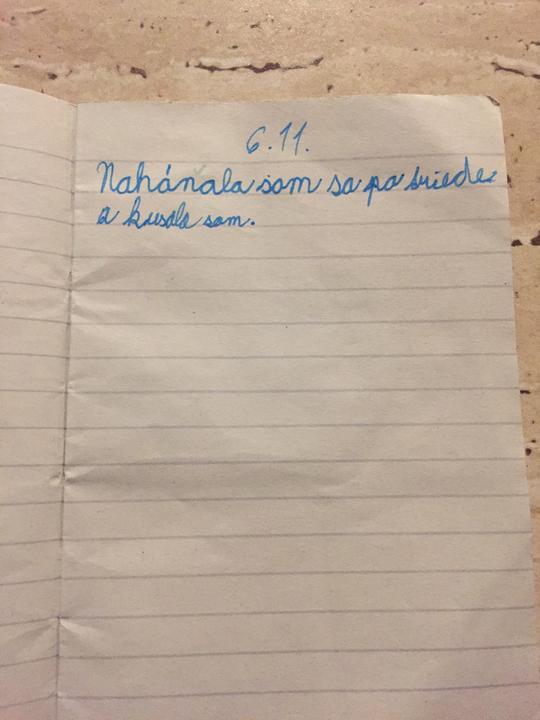 6.11.
Nahánala som sa po triede
a kusala som.